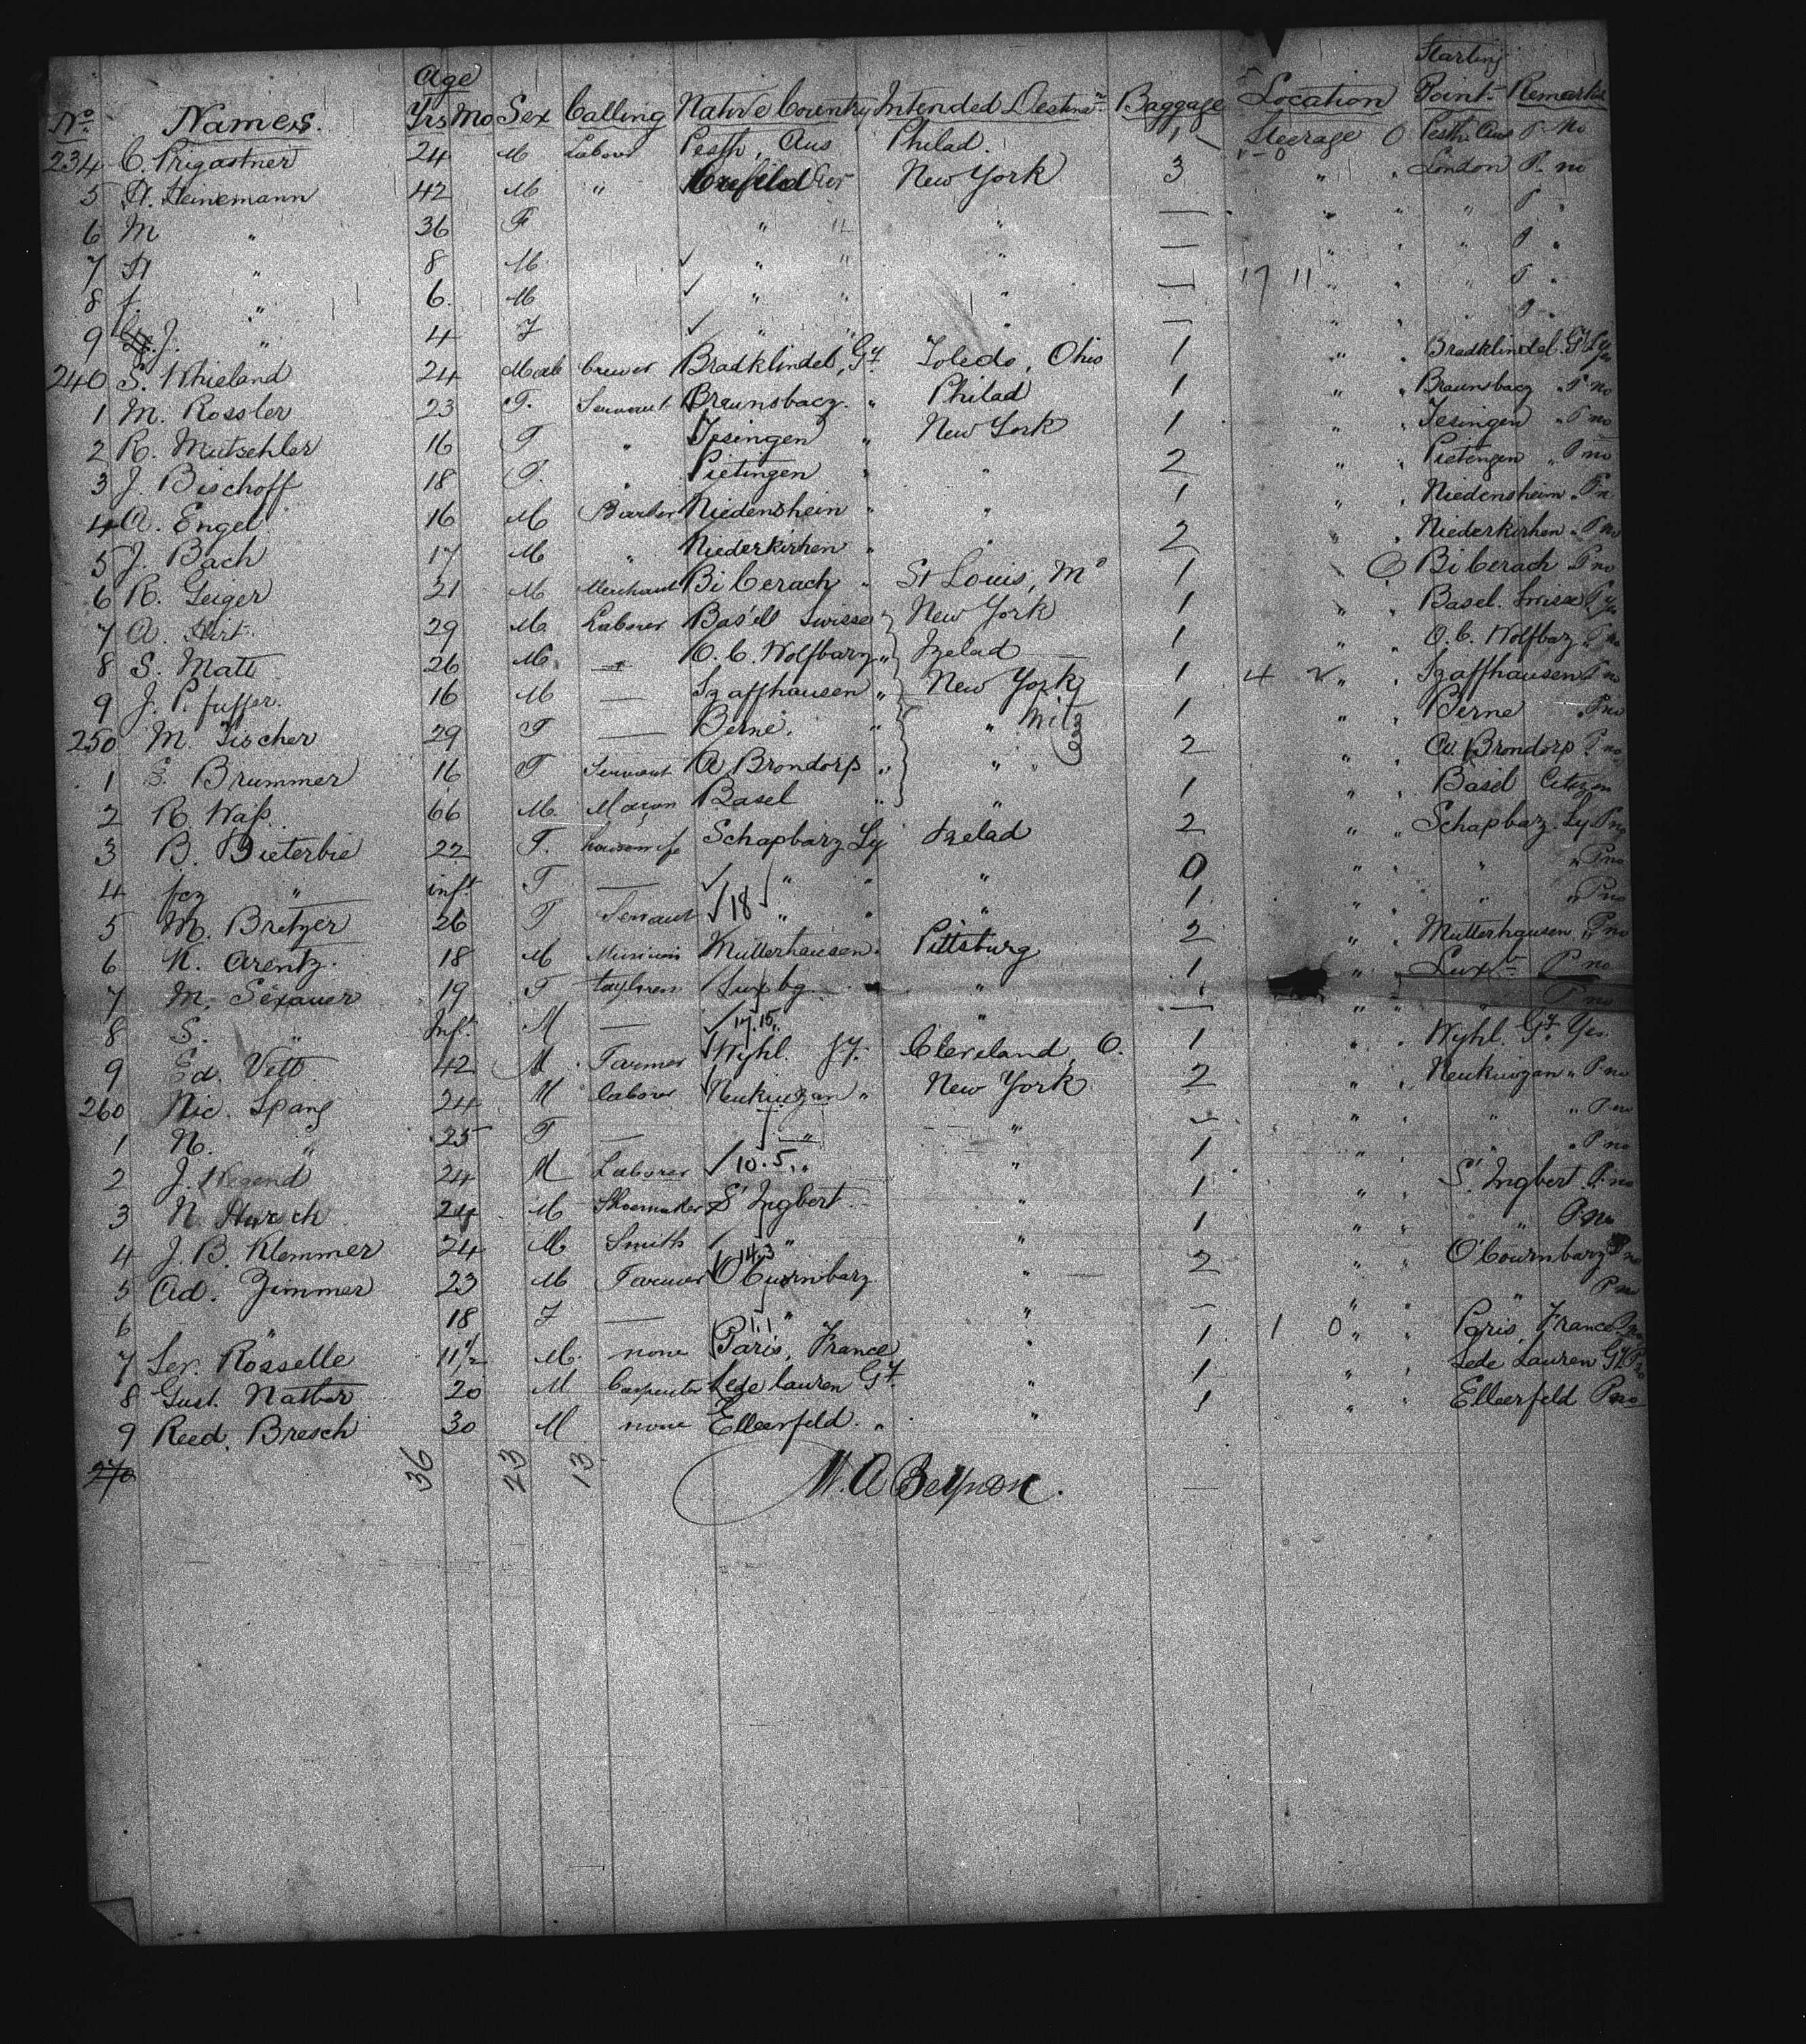 Age Starting
No. Names. Yrs Mo Sex Calling Native Country Intended Destinn Baggage Location Point Remarks
234 C. Prigastner 24 M Labour Pesth, Aus Philad. 1 Steerage 0 Pesth Aus P. no
5 H. Heinemann 42 M " New York 3 " " London P. no
6 M " 36 F " " " — " " " P "
7 H " 8 M ✓ " " " — " " " P "
8 f. " 6 M ✓ " " " — 17 11 " " " P "
9 J. " 4 F ✓ " " " — " " " P "
240 S. Khieland 24 Male brewer Bradklindel, Gy. Toledo, Ohio 1 " " Bradklindel. Gy
1 M. Rossler 23 F. Servant Braunsbacz. " Philad 1 " " Braunsbacz " P no
2 R. Mutschler 16 F " Jesingen " New York 1 " " Jesingen " P no
3 J. Bischoff 18 F. " Pietingen " " 2 " " Pietengen " P no
4 A. Engel 16 M Barber Niedenshein " " 1 " " Niedensheim " P n
5 J. Bach 17 M " Niederkirhen " " 2 " " Niederkirhen " P no
6 R. Geiger 21 M Merchant Biberach " St Louis, Mo 1 " Biberach P no
7 A. Hirt. 29 M Labourer Basell Swisse New York 1 " " Basel. Swisse
8 S. Matt 26 M — O. C. Wolfbarz " Izelad 1 " " O. C. Wolfbarz " P no
9 J. P. fuffer. 16 M — Szaffhausen " New York 1 4 2 " " Szaffhausen P no
250 M. Fischer 29 F — Berne. " " 1 " " Berne " P no
1 S. Brummer 16 F Servant A Brondorp " " " 2 " " A Brondorp P no
2 R. Waß. 66 M. Mason Basel " " 1 " " Basel Citizen
3 B. Dieterbie 22 F. housewife Schapbarz Gy Izelad 2 " " Schapbarz. Gy P no
4 fcz " inft F — ✓ " " " 0 " " " " P no
5 M. Bretzer 26 F Servant ✓ 18 " " " 1 " " " " P no
6 K. Arentz. 18 M Mutterhausen. Pittsburg 2 " " Mutterhausen " P no
7 M. Sexauer 19 F Luxbg. " 1 " " Lux b P no
8 S. " Inft. M — ✓ 17.15 " " — " " " P no
9 Ed. Vett 42 M Farmer Wyhl. Gy. Cleveland, O. 1 " " Wyhl. Gy. Yes
260 Nic. Spang 24 M labour Neukirzan " New York 2 " " Neukirzan " P no
1 N. " 25 F — — " " — " " " " P no
2 J. Wegend 24 M Laborer ✓ 10.5. " " 1 " " P no
3 N. Harsch 24 M Shoemaker St Ingbert " 1 " " St. Ingbert P. no
4 J. B. Klemmer 24 M Smith ✓ " " 1 " " " P. no
5 Ad. Zimmer 23 M Farmer O'Cournbarz " 2 " " O'Cournbarz P no
6 " 18 F — " " — " " " P no
7 Ser. Rosselle 11½ M. none Paris, France " 1 1 0 " " Paris, France P no
8 Gust. Nather 20 M Carpenter Lede lauren Gy. " 1 " " Lede Lauren Gy P no
9 Reed. Bresch 30 M none Elleerfeld. " " 1 " " Elleerfeld P no
270 36 23 13